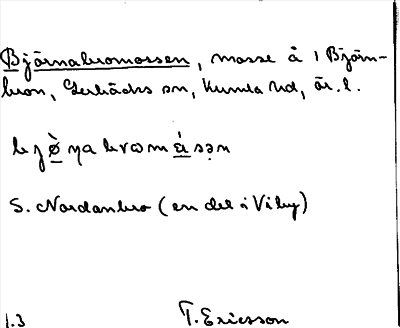 Björnabromossen, mosse å 1 Björn-
bron, Gerbäcks sn, Kumla hd, Ör. l.
S. Nordanbro (en del i Viby)
1.3 T. Ericsson